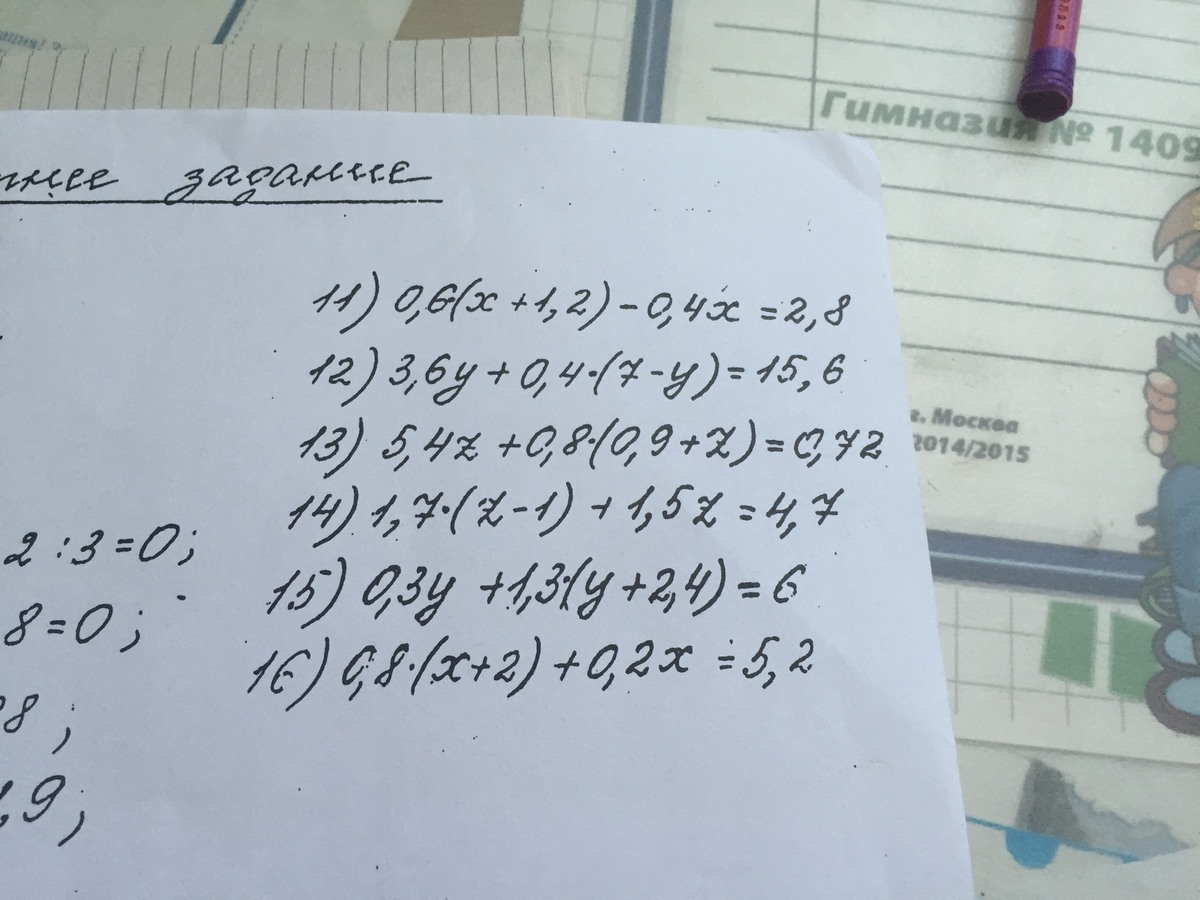 задание
11) 0,6(x+1,2)-0,4x=2,8
12) 3,6y+0,4·(7-y)=15,6
13) 5,4z+0,8·(0,9+z)=0,72
14) 1,7·(z-1)+1,5z=4,7
15) 0,3y+1,3·(y+2,4)=6
16) 0,8·(x+2)+0,2x=5,2
2:3=0;
8=0;
8;
,9;
Гимназия № 1409
г. Москва
2014/2015